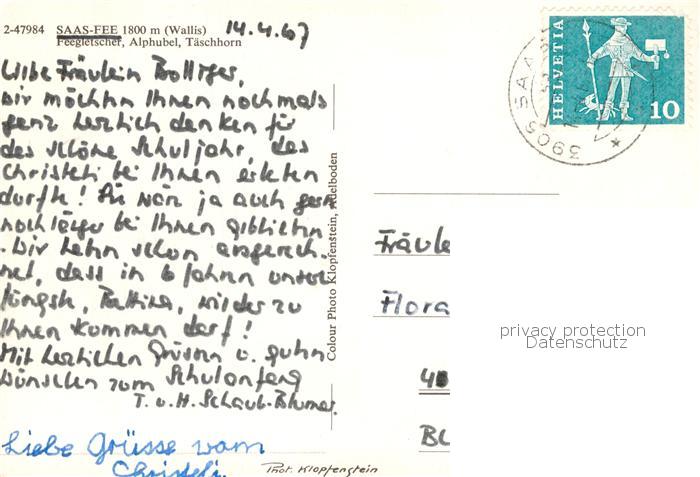 2-47984 SAAS-FEE 1800 m (Wallis)
Feegletscher, Alphubel, Täschhorn
14.4.67
Liebe Fräulein Bolliger,
wir möchten Ihnen nochmals
ganz herzlich danken für
das schöne Schuljahr, das
Christeli bei Ihnen erleben
durfte! Sie wär ja auch gern
noch länger bei Ihnen geblieben
. Wir haben schon ausgerech-
net, dass in 6 Jahren unsere
Jüngste, Bettina, wieder zu
Ihnen kommen darf!
Mit herzlichen Grüssen u. guten
Wünschen zum Schulanfang
T. u. H. Schaub-Blumer.
Liebe Grüsse vom
Christeli.
Colour Photo Klopfenstein, Adelboden
Phot. Klopfenstein
HELVETIA
10
3905 SAA
Fräule
Flora
4
BL
privacy protection
Datenschutz